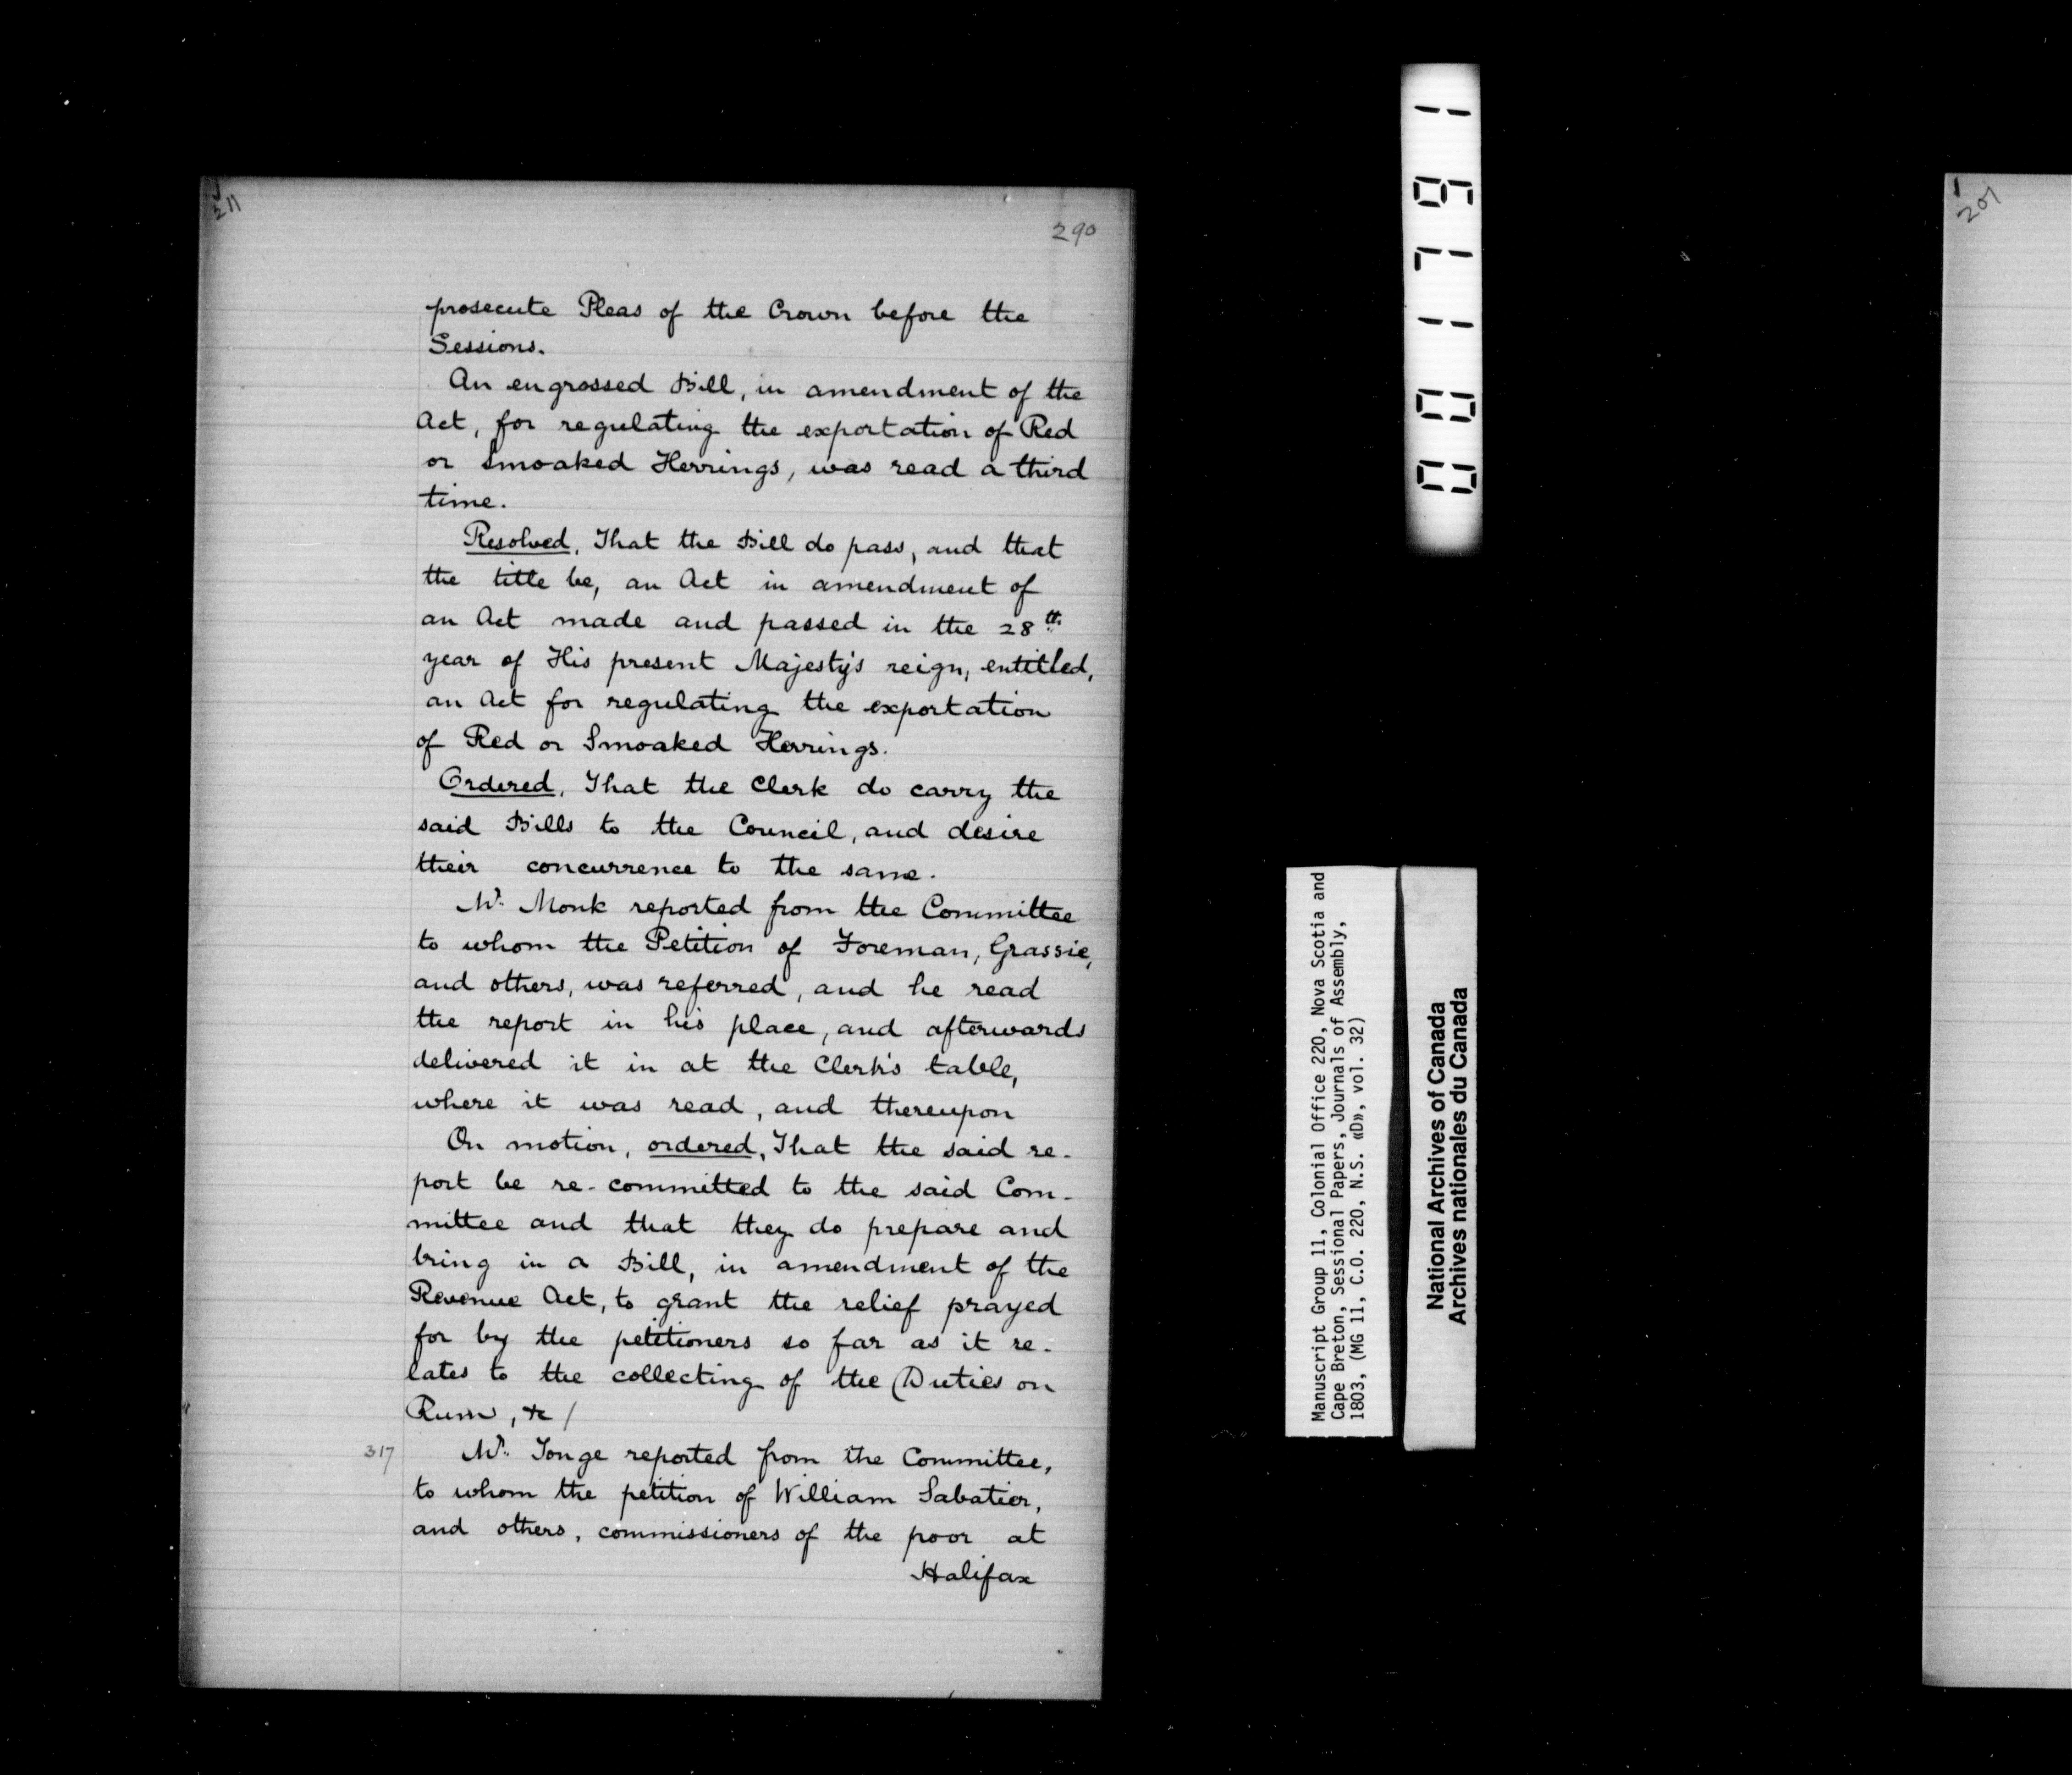 211
290
prosecute Pleas of the Crown before the
Sessions.
An engrossed Bill, in amendment of the
Act, for regulating the exportation of Red
or Smoaked Herrings, was read a third
time.
Resolved, That the Bill do pass, and that
the title be, an Act in amendment of
an Act made and passed in the 28th
year of His present Majesty's reign, entitled,
an Act for regulating the exportation
of Red or Smoaked Herrings.
Ordered, That the Clerk do carry the
said Bills to the Council, and desire
their concurrence to the same.
Mr. Monk reported from the Committee
to whom the Petition of Foreman, Grassie,
and others, was referred, and he read
the report in his place, and afterwards
delivered it in at the Clerk's table,
where it was read, and thereupon
On motion, ordered, That the said re-
port be re-committed to the said Com-
mittee and that they do prepare and
bring in a Bill, in amendment of the
Revenue Act, to grant the relief prayed
for by the petitioners so far as it re-
lates to the collecting of the Duties on
Rum, &c /
317
Mr. Tonge reported from the Committee,
to whom the petition of William Sabatier,
and others, commissioners of the poor at
Halifax
001761
Manuscript Group 11, Colonial Office 220, Nova Scotia and
Cape Breton, Sessional Papers, Journals of Assembly,
1803, (MG 11, C.O. 220, N.S. «D», vol. 32)
National Archives of Canada
Archives nationales du Canada